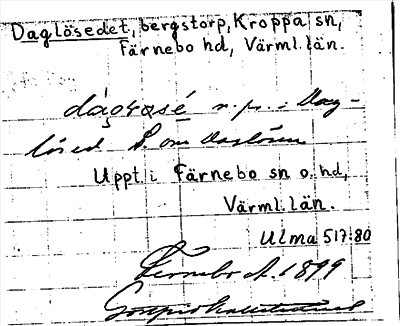 Daglösedet, bergstorp, Kroppa sn,
Färnebo hd, Värml. län.
dagrosé n. pr. = Dag-
lösed. S. om Daglösen
Uppt. i Färnebo sn o. hd,
Värml. län.
Ulma 517:80
Fernebo d. 1899